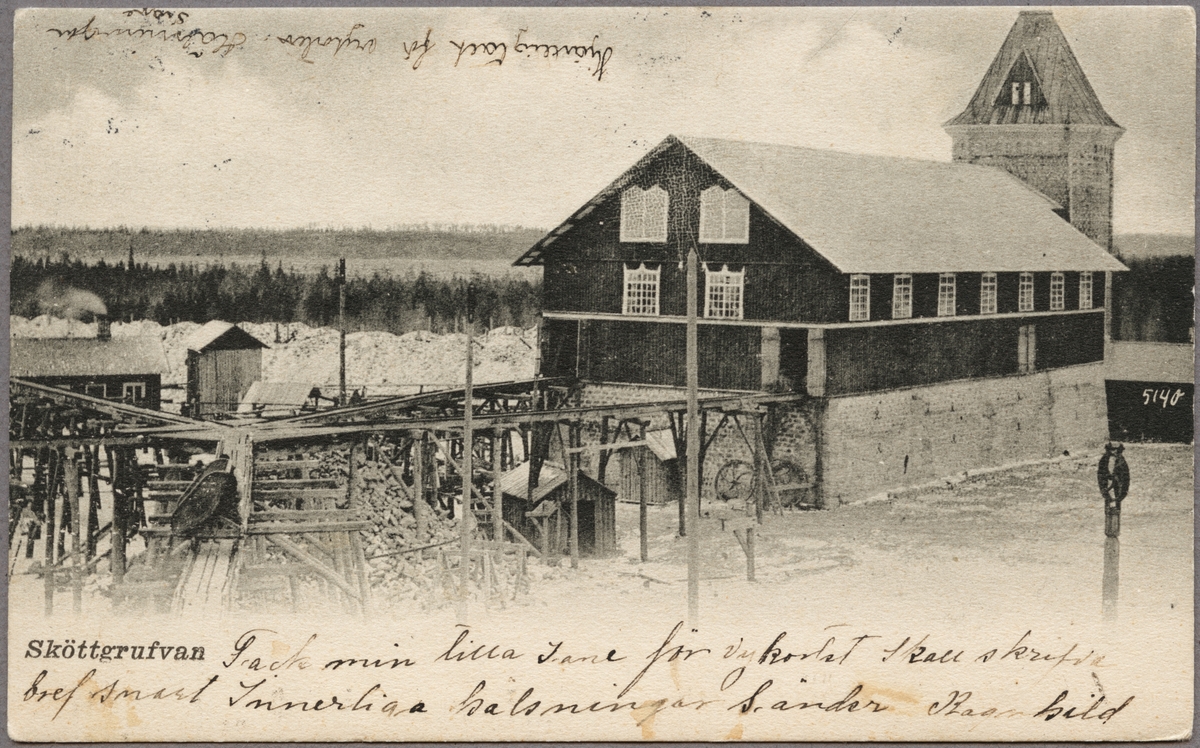 Hjärtligt tack för vykortet. Hälsningar
5140
Sköttgrufvan Tack min lilla Jane för vykortet Skall skrifva
bref snart Innerliga hälsningar Sänder Ragnhild